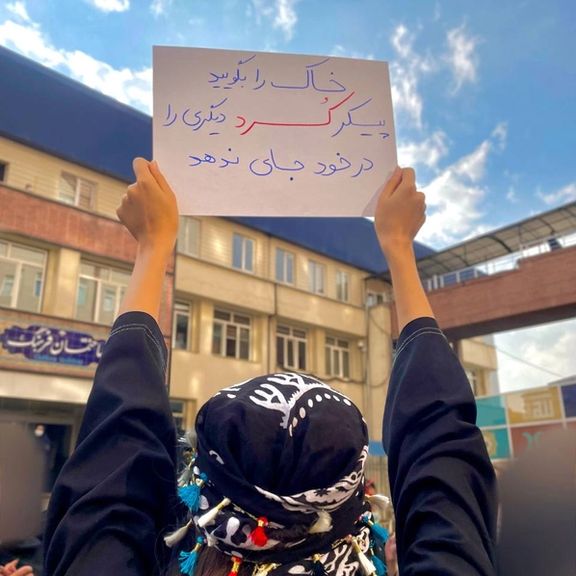 خاک را بگویید
پیکر کُرد دیگری را
در خود جای ندهد
ساختمان فرهنگ